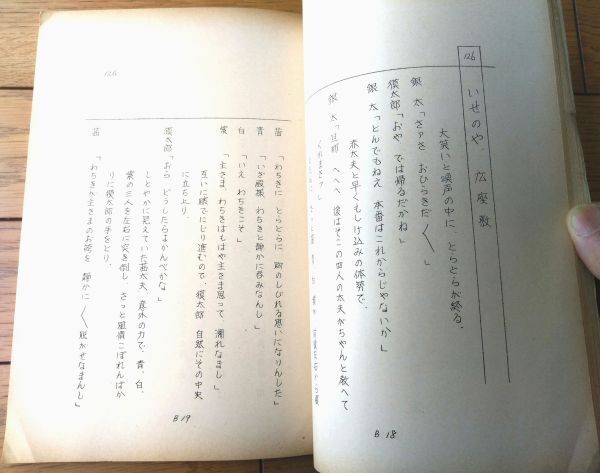 126
いせのや、広座敷
大笑いと喚声の中に、とらとらが終る。
銀太「さァさ おひらきだ〱。」
獏太郎「おや では帰るだかね」
銀太「とんでもねえ 本番はこれからじゃないか」
赤太夫と早くもしけ込みの体勢で、
銀太「旦那 へへへ 後はそこの四人の太夫がちゃんと教へて
くれまさァ」
B 18
126
茜「わちきに とらとらに 胸のしびれる思いになりんした」
青「いざ殿様 わちきと静かに呑みなんし」
白「いえ わちきこそ」
紫「主さま、わちきはもはや主さま思って 濡れなまし」
互いに膝でにじり進むので、獏太郎 自然にその中央
に立ち上り、
獏太郎「おら どうしたらよかんべかな」
しとやかに控えていた茜太夫、意外の力で、青、白、
紫の三人を左右に突き倒し、さっと風情こぼれんばか
りに獏太郎の手をとり、
茜「わちきが主さまのお筋を 静かに〱 脱がせなまんし」
B 19